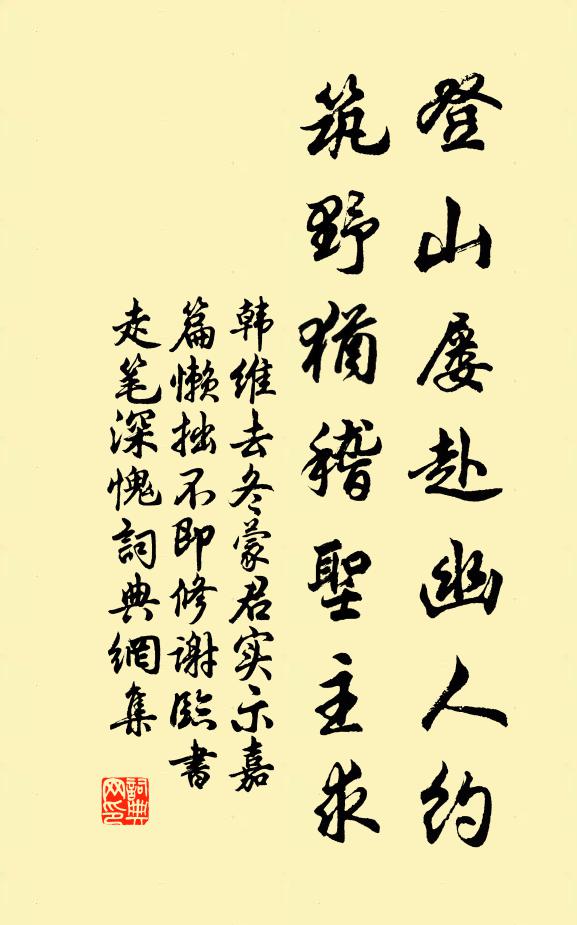 登山屡赴幽人约
筑野犹稽聖主求
韩维去冬蒙君实示嘉
篇懒拙不即修谢临書
走笔深愧詞典網集
詞典
网印